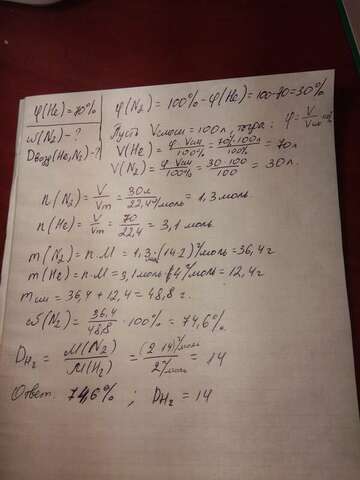 φ(He) = 70%
ω(N₂) - ?
Dвозд(He, N₂) - ?
φ(N₂) = 100% - φ(He) = 100 - 70 = 30%
Пусть Vсмеси = 100 л, тогда: φ = V/Vсм · 100%
V(He) = φ · Vсм/100% = 70% · 100л/100% = 70л
V(N₂) = φ · Vсм/100% = 30 · 100/100 = 30л.
n(N₂) = V/Vm = 30л/22,4 л/моль = 1,3 моль.
n(He) = V/Vm = 70/22,4 = 3,1 моль.
m(N₂) = n · M = 1,3 · (14·2) г/моль = 36,4 г
m(He) = n · M = 3,1 моль · 4 г/моль = 12,4 г
mсм = 36,4 + 12,4 = 48,8 г.
ω(N₂) = 36,4/48,8 · 100% = 74,6%
DH₂ = M(N₂)/M(H₂) = (2·14) г/моль/2 г/моль = 14
Ответ. 74,6% ; DH₂ = 14